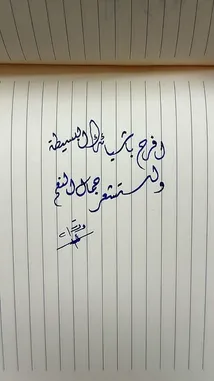 افرح بأشيائك البسيطة
ولتستشعر جمال النعم